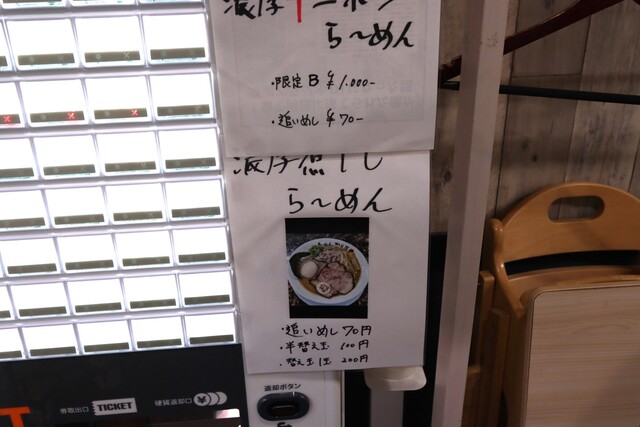 濃厚
らーめん
・限定B ¥1,000-
・追いめし ¥70-
濃厚煮干し
らーめん
・追いめし 70円
・半替え玉 100円
・替え玉1玉 200円
返却ボタン
券取出口 TICKET 硬貨返却口